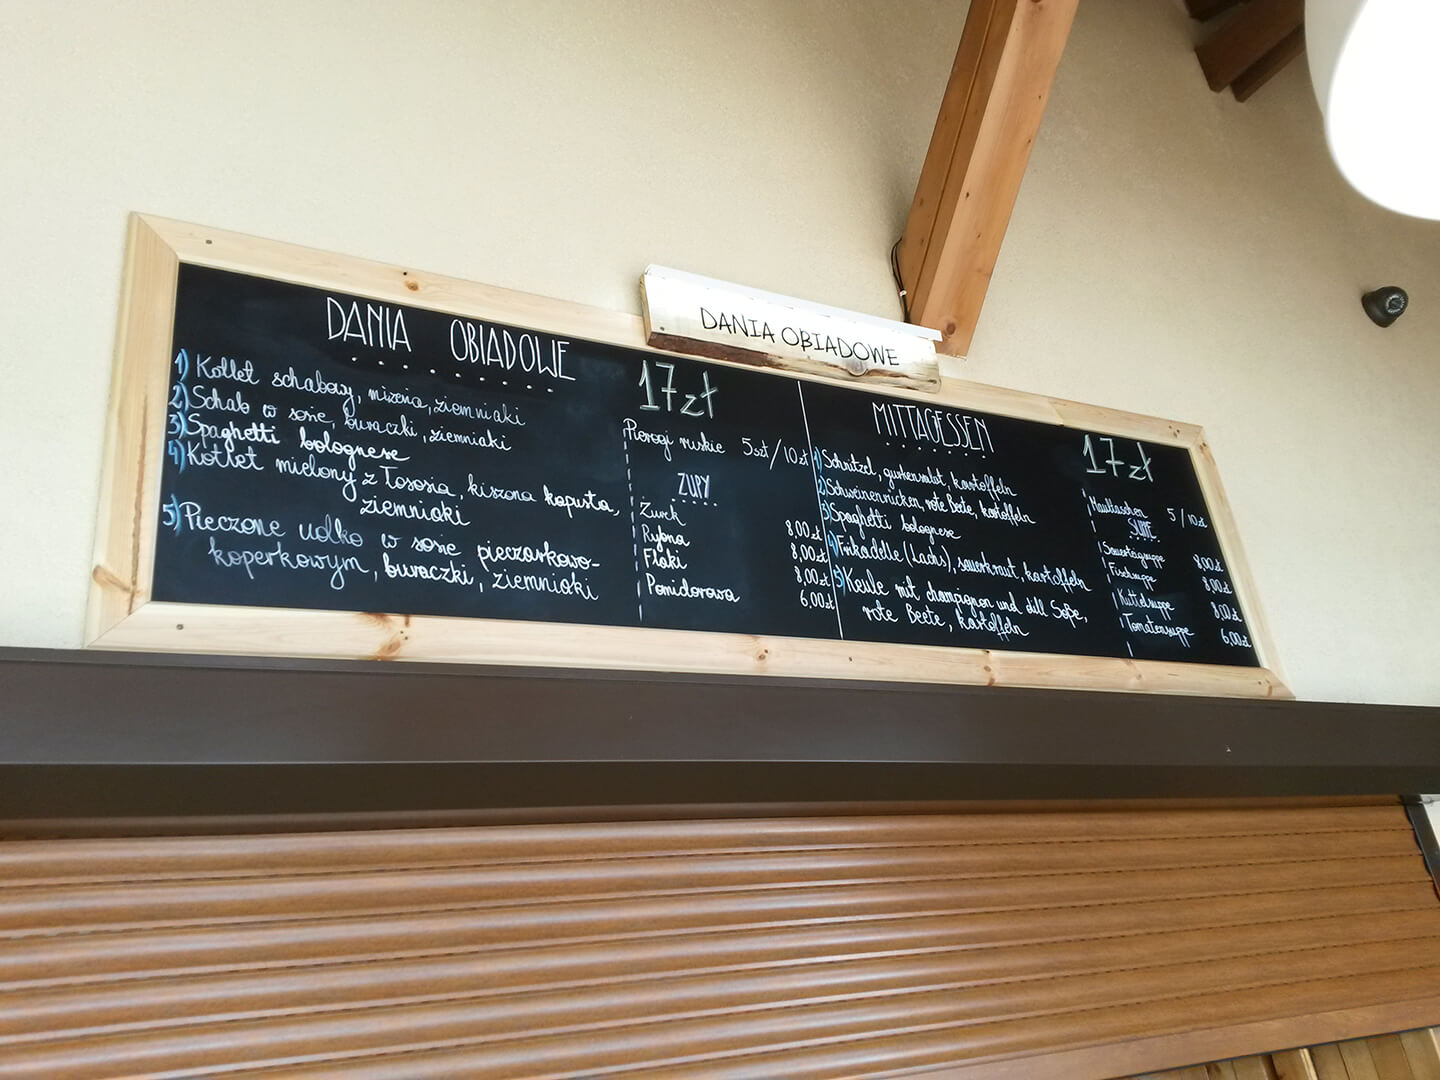 DANIA OBIADOWE
DANIA OBIADOWE
1) Kotlet schabowy, mizeria, ziemniaki
2) Schab w sosie, buraczki, ziemniaki
3) Spaghetti bolognese
4) Kotlet mielony z Łososia, kiszona kapusta,
ziemniaki
5) Pieczone udko w sosie pieczarkowo-
koperkowym, buraczki, ziemniaki
17 zł
Pierogi ruskie 5szt/10zł
ZUPY
Żurek 8,00zł
Rybna 8,00zł
Flaki 8,00zł
Pomidorowa 6,00zł
MITTAGESSEN
1) Schnitzel, gurkensalat, kartoffeln
2) Schweinenrücken, rote Beete, kartoffeln
3) Spaghetti bolognese
4) Frikadelle (Lachs), sauerkraut, kartoffeln
5) Keule mit champignon und dill Soße,
rote Beete, kartoffeln
17 zł
Maultaschen 5/10zł
SUPPE
Sauerteigsuppe 8,00zł
Fischsuppe 8,00zł
Kuttelsuppe 8,00zł
Tomatensuppe 6,00zł